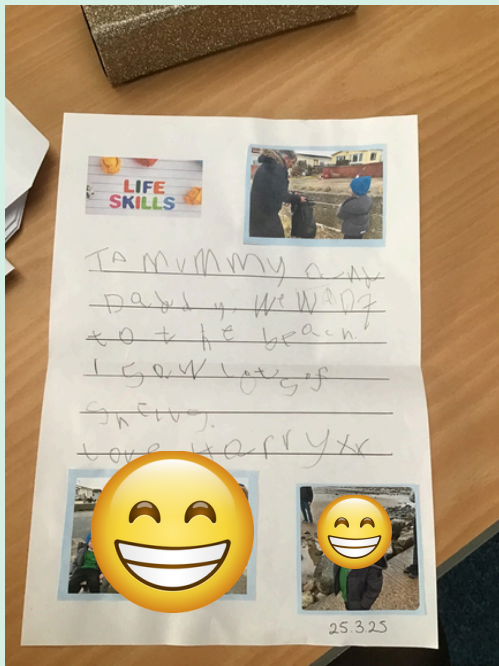 LIFE
SKILLS
To MUMMY and
Daddy. We WaNt
to the beach.
I saw lots of
Shells.
Love Harry xx
25.3.25